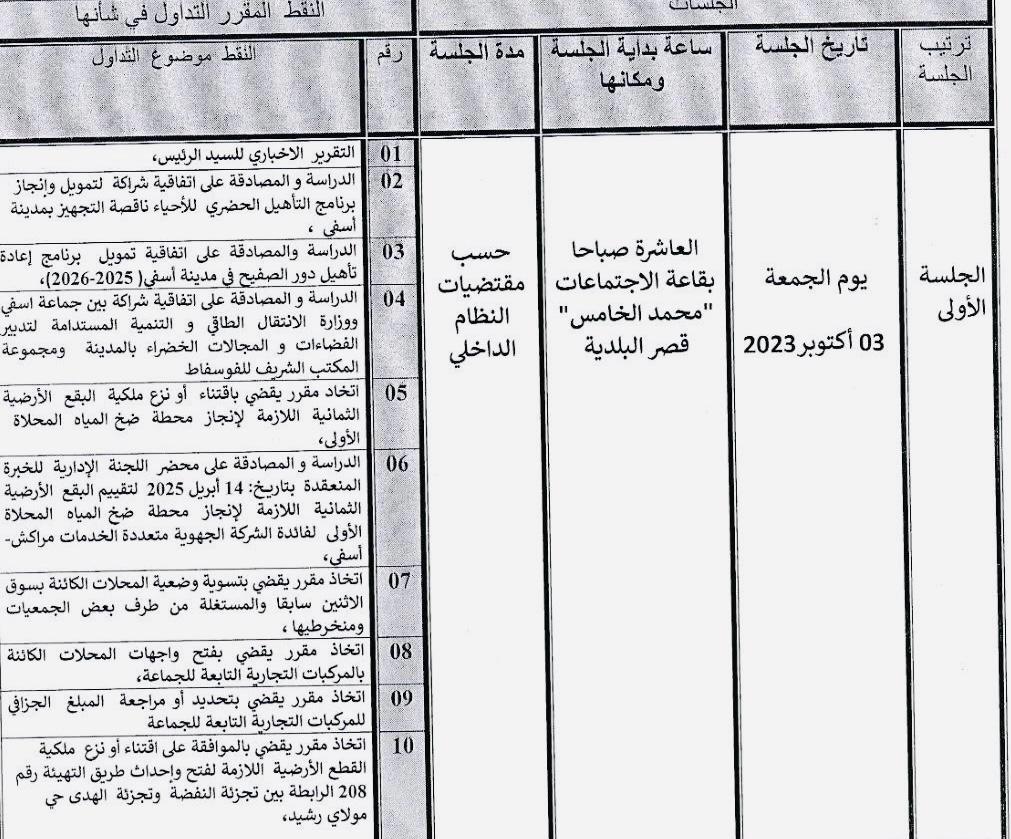 الجلسات
النقط المقرر التداول في شأنها
ترتيب
الجلسة
تاريخ الجلسة
ساعة بداية الجلسة
ومكانها
مدة الجلسة
رقم
النقط موضوع التداول
الجلسة
الأولى
يوم الجمعة
03 أكتوبر 2023
العاشرة صباحا
بقاعة الاجتماعات
"محمد الخامس"
قصر البلدية
حسب
مقتضيات
النظام
الداخلي
01 التقرير الاخباري للسيد الرئيس،
02 الدراسة و المصادقة على اتفاقية شراكة لتمويل وإنجاز
برنامج التأهيل الحضري للأحياء ناقصة التجهيز بمدينة
أسفي ،
03 الدراسة والمصادقة على اتفاقية تمويل برنامج إعادة
تأهيل دور الصفيح في مدينة أسفي( 2025-2026)،
04 الدراسة و المصادقة على اتفاقية شراكة بين جماعة اسفي
ووزارة الانتقال الطاقي و التنمية المستدامة لتدبير
الفضاءات و المجالات الخضراء بالمدينة ومجموعة
المكتب الشريف للفوسفاط
05 اتخاد مقرر يقضي باقتناء أو نزع ملكية البقع الأرضية
الثمانية اللازمة لإنجاز محطة ضخ المياه المحلاة
الأولى،
06 الدراسة و المصادقة على محضر اللجنة الإدارية للخبرة
المنعقدة بتاريخ: 14 أبريل 2025 لتقييم البقع الأرضية
الثمانية اللازمة لإنجاز محطة ضخ المياه المحلاة
الأولى لفائدة الشركة الجهوية متعددة الخدمات مراكش-
أسفي،
07 اتخاذ مقرر يقضي بتسوية وضعية المحلات الكائنة بسوق
الاثنين سابقا والمستغلة من طرف بعض الجمعيات
ومنخرطيها ،
08 اتخاذ مقرر يقضي بفتح واجهات المحلات الكائنة
بالمركبات التجارية التابعة للجماعة،
09 اتخاذ مقرر يقضي بتحديد أو مراجعة المبلغ الجزافي
للمركبات التجارية التابعة للجماعة
10 اتخاذ مقرر يقضي بالموافقة على اقتناء أو نزع ملكية
القطع الأرضية اللازمة لفتح وإحداث طريق التهيئة رقم
208 الرابطة بين تجزئة النفضة وتجزئة الهدى حي
مولاي رشيد،